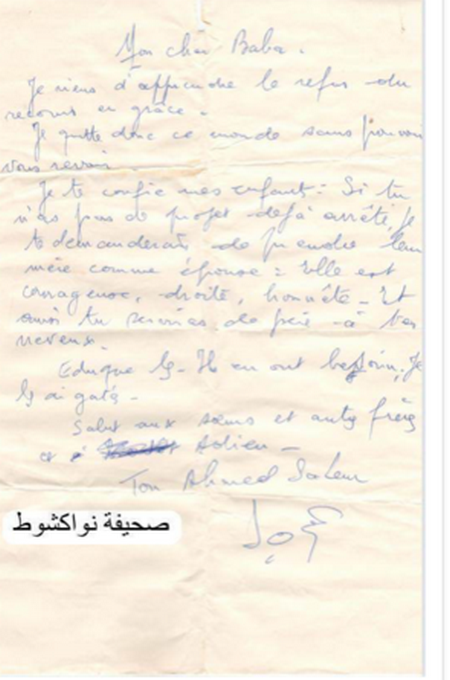 Mon cher Baba.
Je viens d'apprendre le refus du
recours en grâce.
Je quitte donc ce monde sans pouvoir
vous revoir
Je te confie mes enfants : Si tu
n'as pas de projet déjà arrêté, Je
te demanderais de prendre leur
mère comme épouse : Elle est
courageuse, droite, honnête - Et
ainsi tu serviras de père à tes
neveux.
Eduque les - Ils en ont besoin. Je
les ai gatés -
Salut aux sœurs et autres frères
et à Adieu -
Ton Ahmed Salem
صحيفة نواكشوط